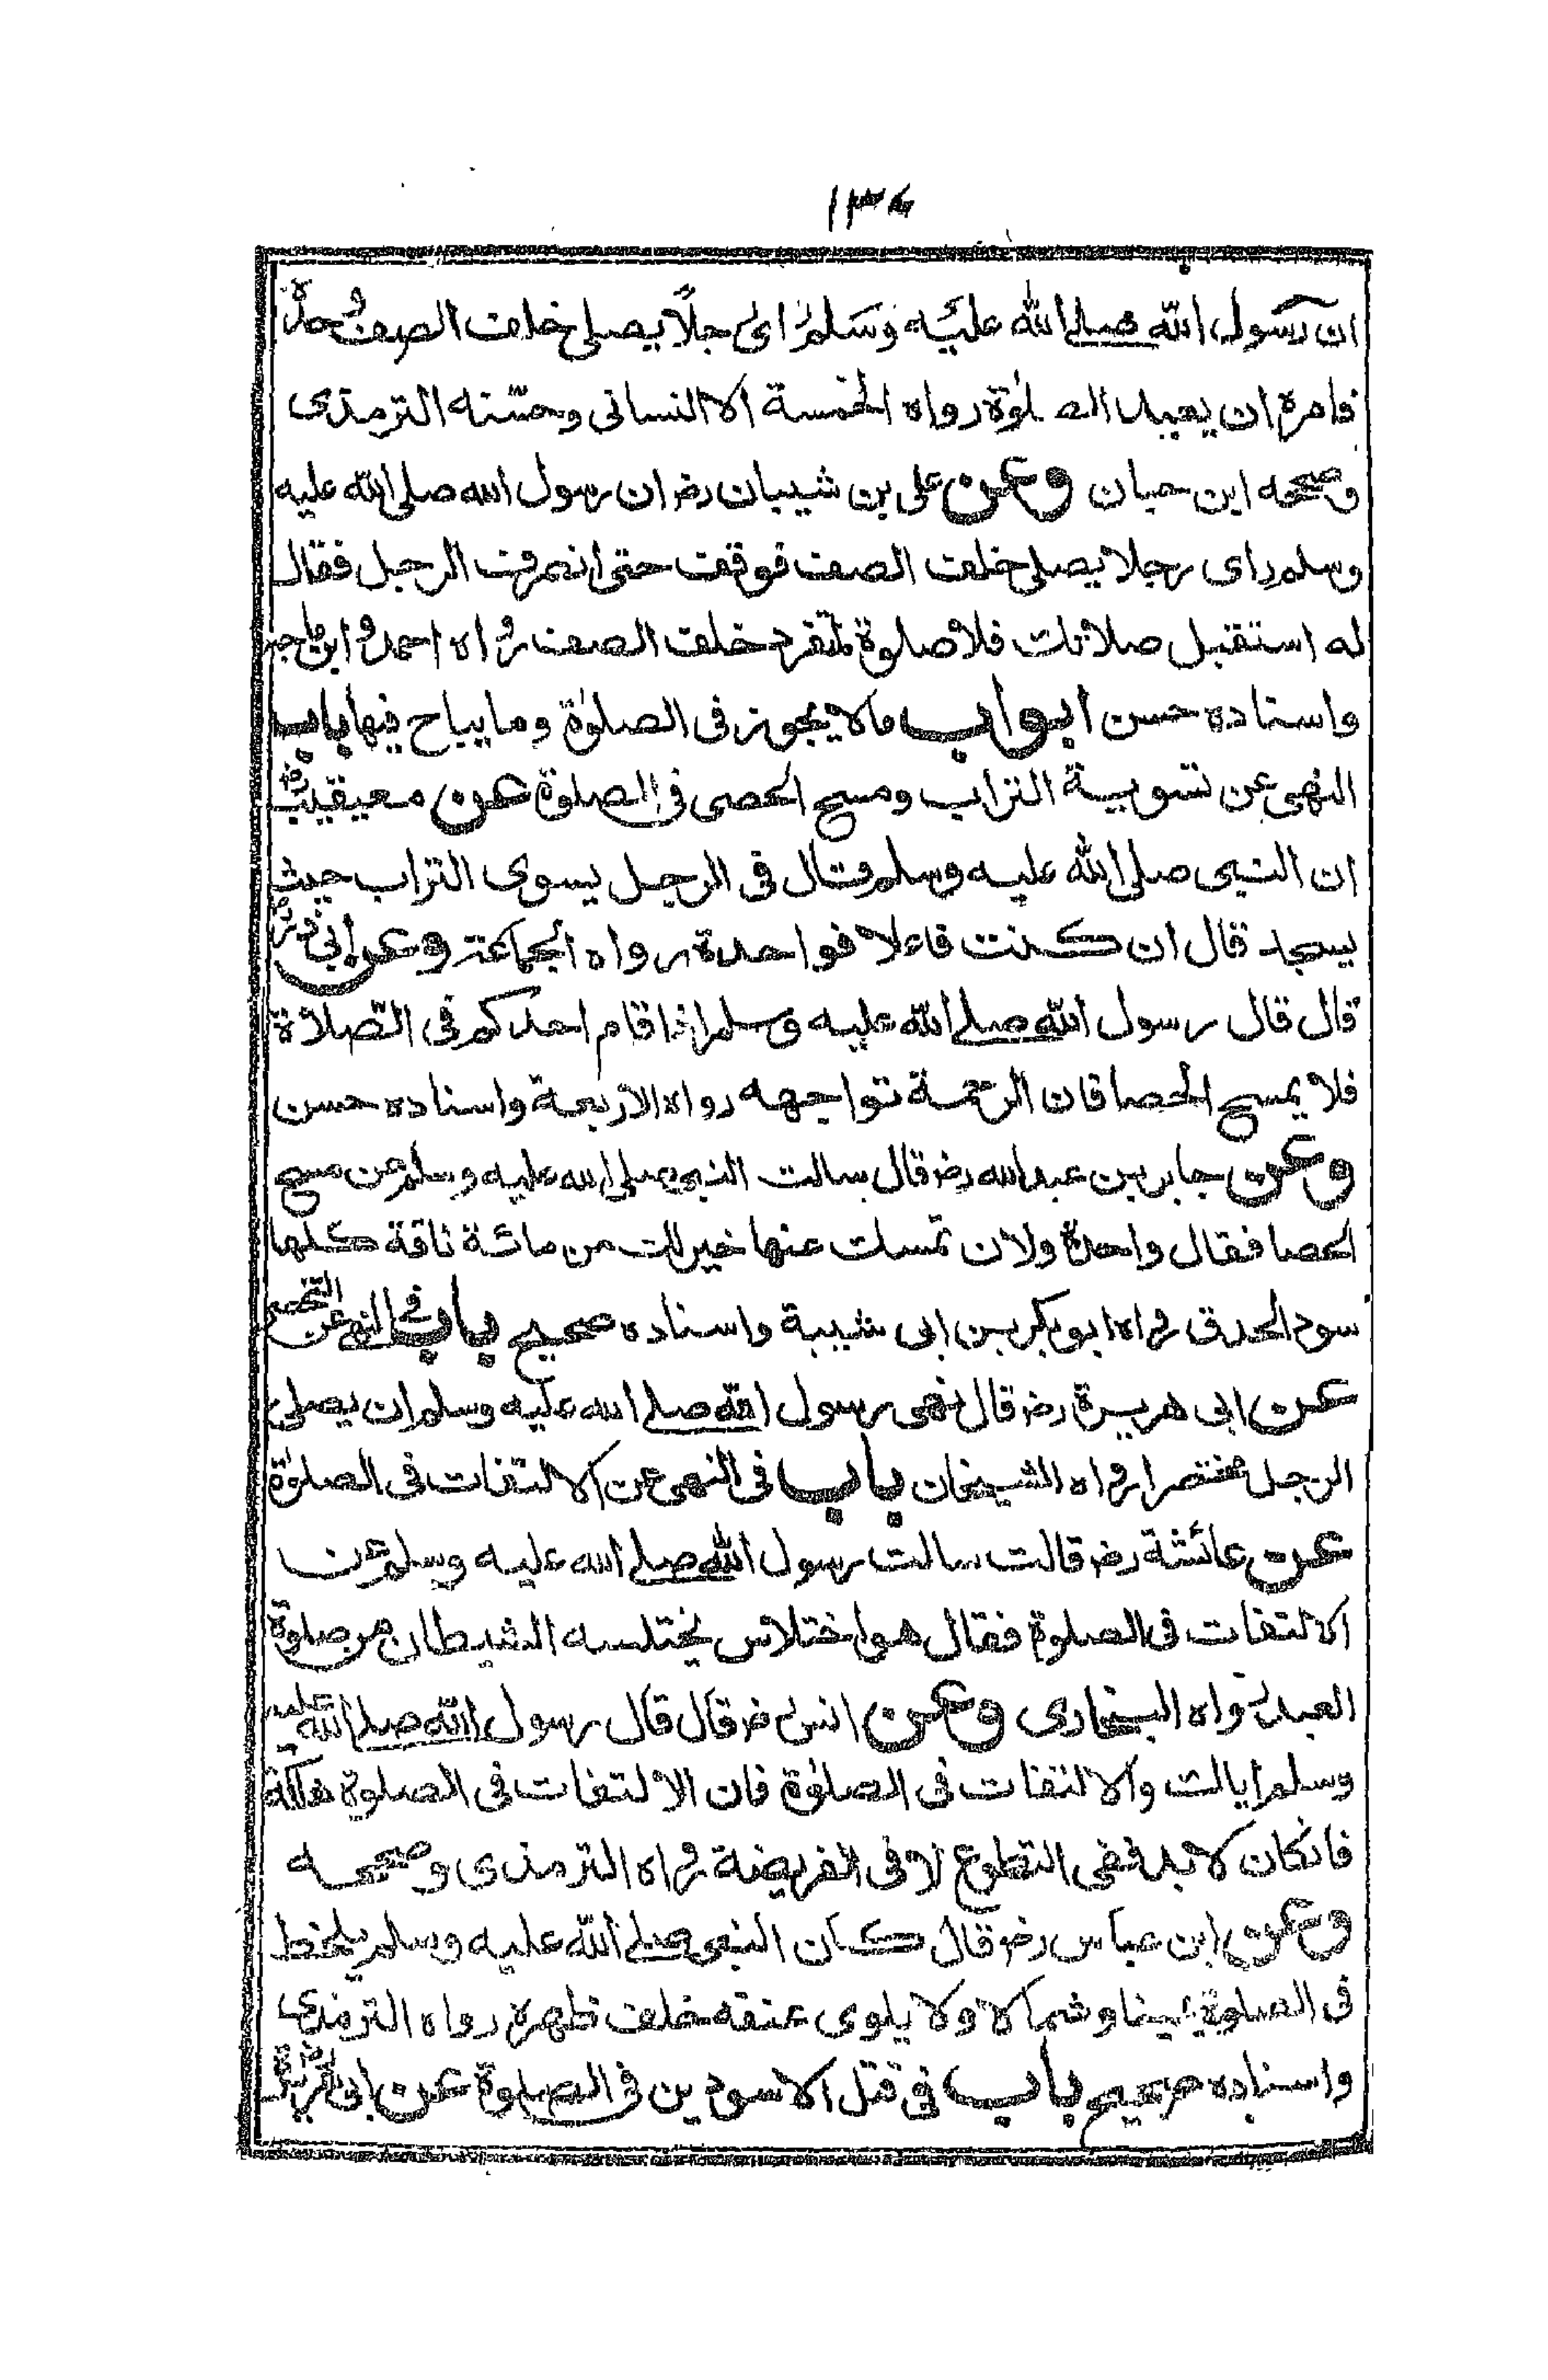 ۱۳۴
ان رسول الله صلى الله عليه وسلم رأى رجلاً يصلي خلف الصف وحده
فامره ان يعيد الصلوٰة رواه الخمسة الا النسائى وحسّنه الترمذى
وصححه ابن حبان وعن على بن شيبان رضـ ان رسول الله صلى الله عليه
وسلم راى رجلا يصلى خلف الصف فوقف حتى انصرف الرجل فقال
له استقبل صلاتك فلا صلوة لمنفرد خلف الصف رواه احمد وابن ماجه
واسناده حسن ابواب ما لا يجوز فى الصلوٰة وما يباح فيها باب
النهى عن تسوية التراب ومسح الحصى فى الصلوة عن معيقيب رضـ
ان النبى صلى الله عليه وسلم قال فى الرجل يسوى التراب حيث
يسجد قال ان كنت فاعلا فواحدة رواه الجماعة وعن ابى ذر رضـ
قال قال رسول الله صلى الله عليه وسلم اذا قام احدكم فى الصّلاة
فلا يمسح الحصا فان الرحمة تواجهه رواه الاربعة واسناده حسن
وعن جابر بن عبد الله رضـ قال سالت النبى صلى الله عليه وسلم عن مسح
الحصا فقال واحدة ولان تمسك عنها خير لك من مائة ناقة كلها
سود الحدق رواه ابو بكر بن ابى شيبة واسناده صحيح باب فى النهى عن التخصر
عن ابى هريرة رضـ قال نهى رسول الله صلى الله عليه وسلم ان يصلى
الرجل مختصرا رواه الشيخان باب فى النهى عن الالتفات فى الصلوٰة
عن عائشة رضـ قالت سالت رسول الله صلى الله عليه وسلم عن
الالتفات فى الصلوة فقال هو اختلاس يختلسه الشيطان من صلوة
العبد رواه البخارى وعن انس رضـ قال قال رسول الله صلى الله عليه
وسلم اياك والالتفات فى الصلوٰة فان الالتفات فى الصلوة هلكة
فانكان لا بد ففى التطوع لا فى الفريضة رواه الترمذى وصححه
وعن ابن عباس رضـ قال كان النبى صلى الله عليه وسلم يلحظ
فى الصلوة يمينا وشمالا ولا يلوى عنقه خلف ظهره رواه الترمذى
واسناده صحيح باب فى قتل الاسودين فى الصلوة عن ابى هريرة رضـ